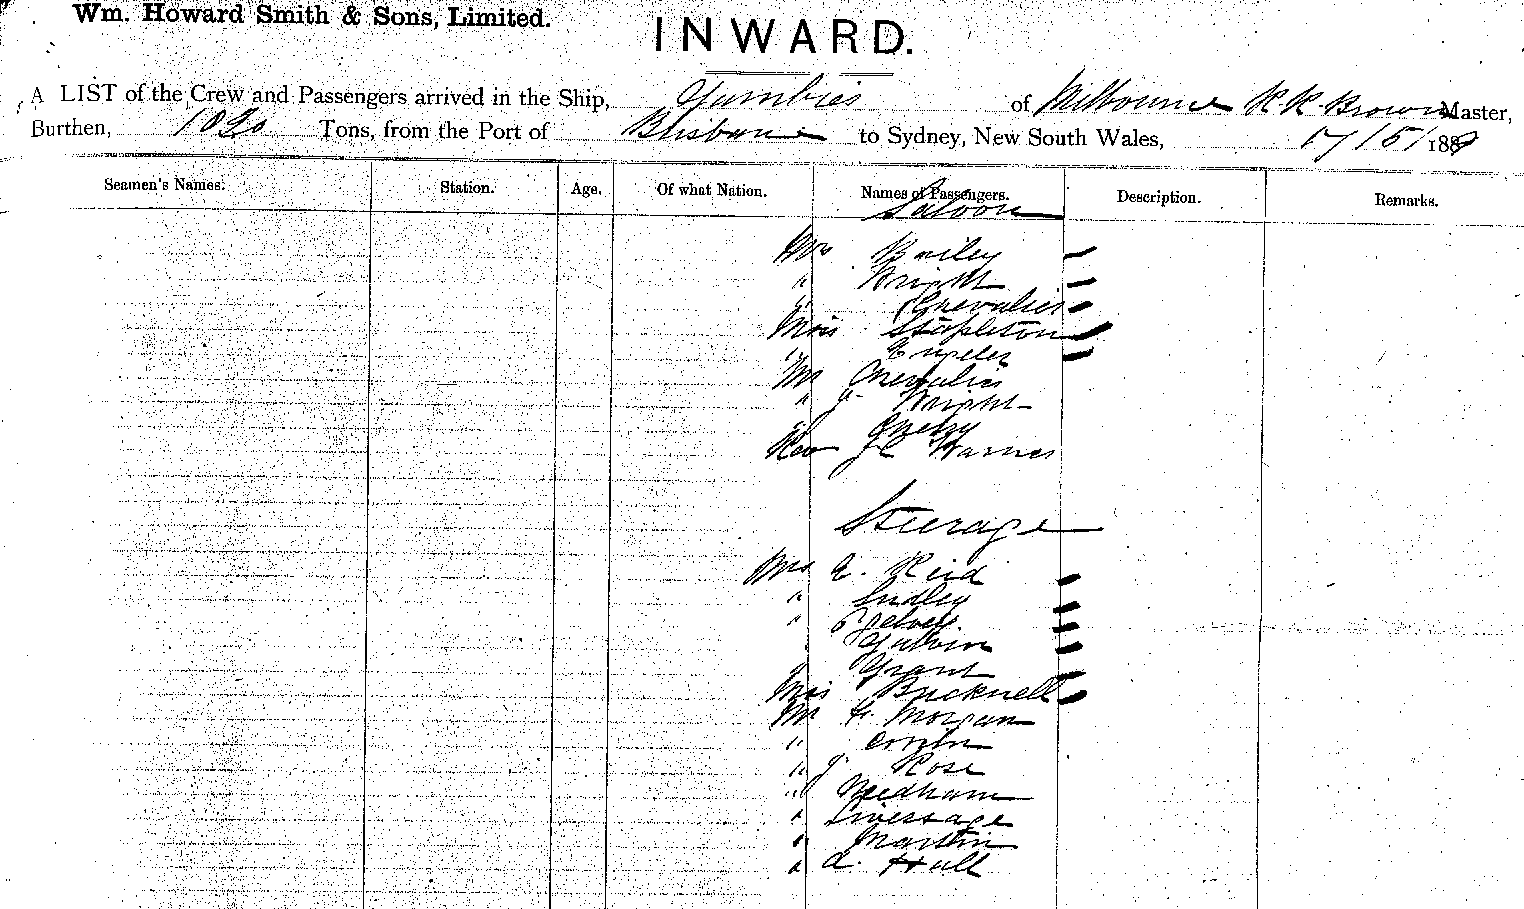 Wm. Howard Smith & Sons, Limited.
INWARD.
A LIST of the Crew and Passengers arrived in the Ship, Gambier of Melbourne R. K. Brown Master,
Burthen, Tons, from the Port of Brisbane to Sydney, New South Wales, 17/5/1889
Seamen's Names. Station. Age. Of what Nation. Names of Passengers. Description. Remarks.
Saloon
Mrs Bailey
" Wright
" Chevalier
Miss Stapleton
"
Mr Chevalier
" J Wright
"
Rev J C Warnes
Steerage
Mrs A. Reid
"
"
Galvin
Grant
Miss Bucknell
Mr G. Morgan
"
" J Rose
" Needham
" Livessage
" Martin
" A. Hall